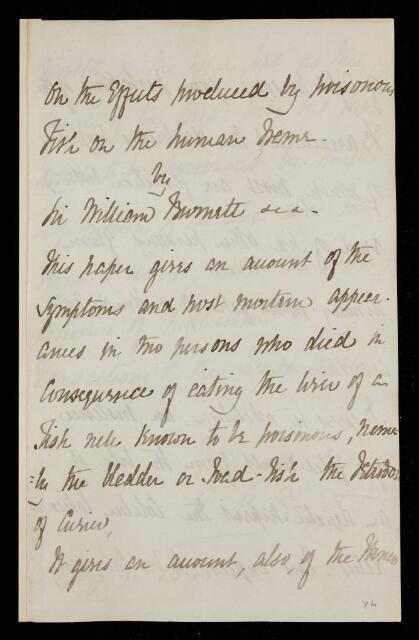 On the Effects produced by poisonous
Fish on the human Frame.
by
Sir William Burnett &c.
This paper gives an account of the
symptoms and post mortem appear-
ances in two persons who died in
consequence of eating the liver of a
Fish well known to be poisonous, name-
ly the Bladder or Toad-Fish the Tetrodon
of Cuvier,
It gives an account, also, of the
74